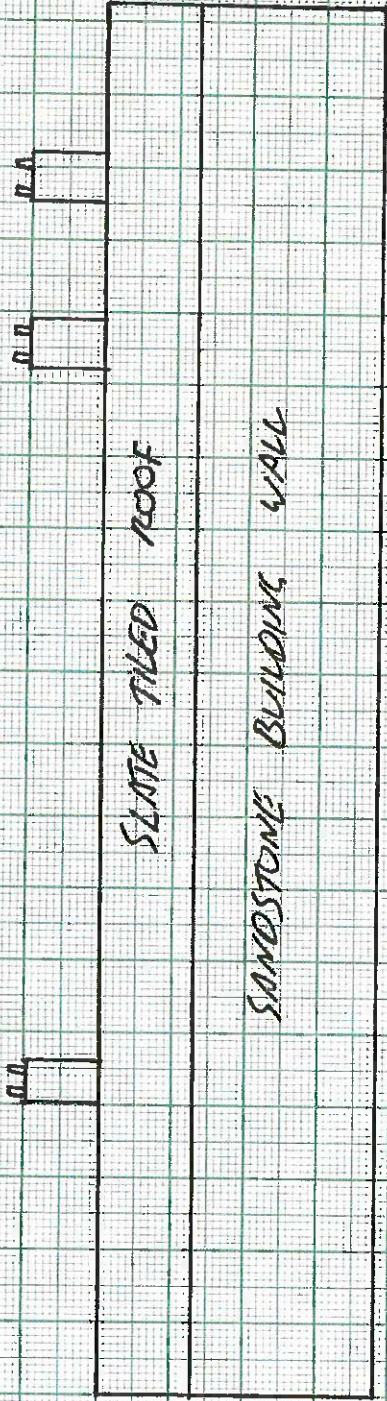 SLATE TILED ROOF
SANDSTONE BUILDING WALL